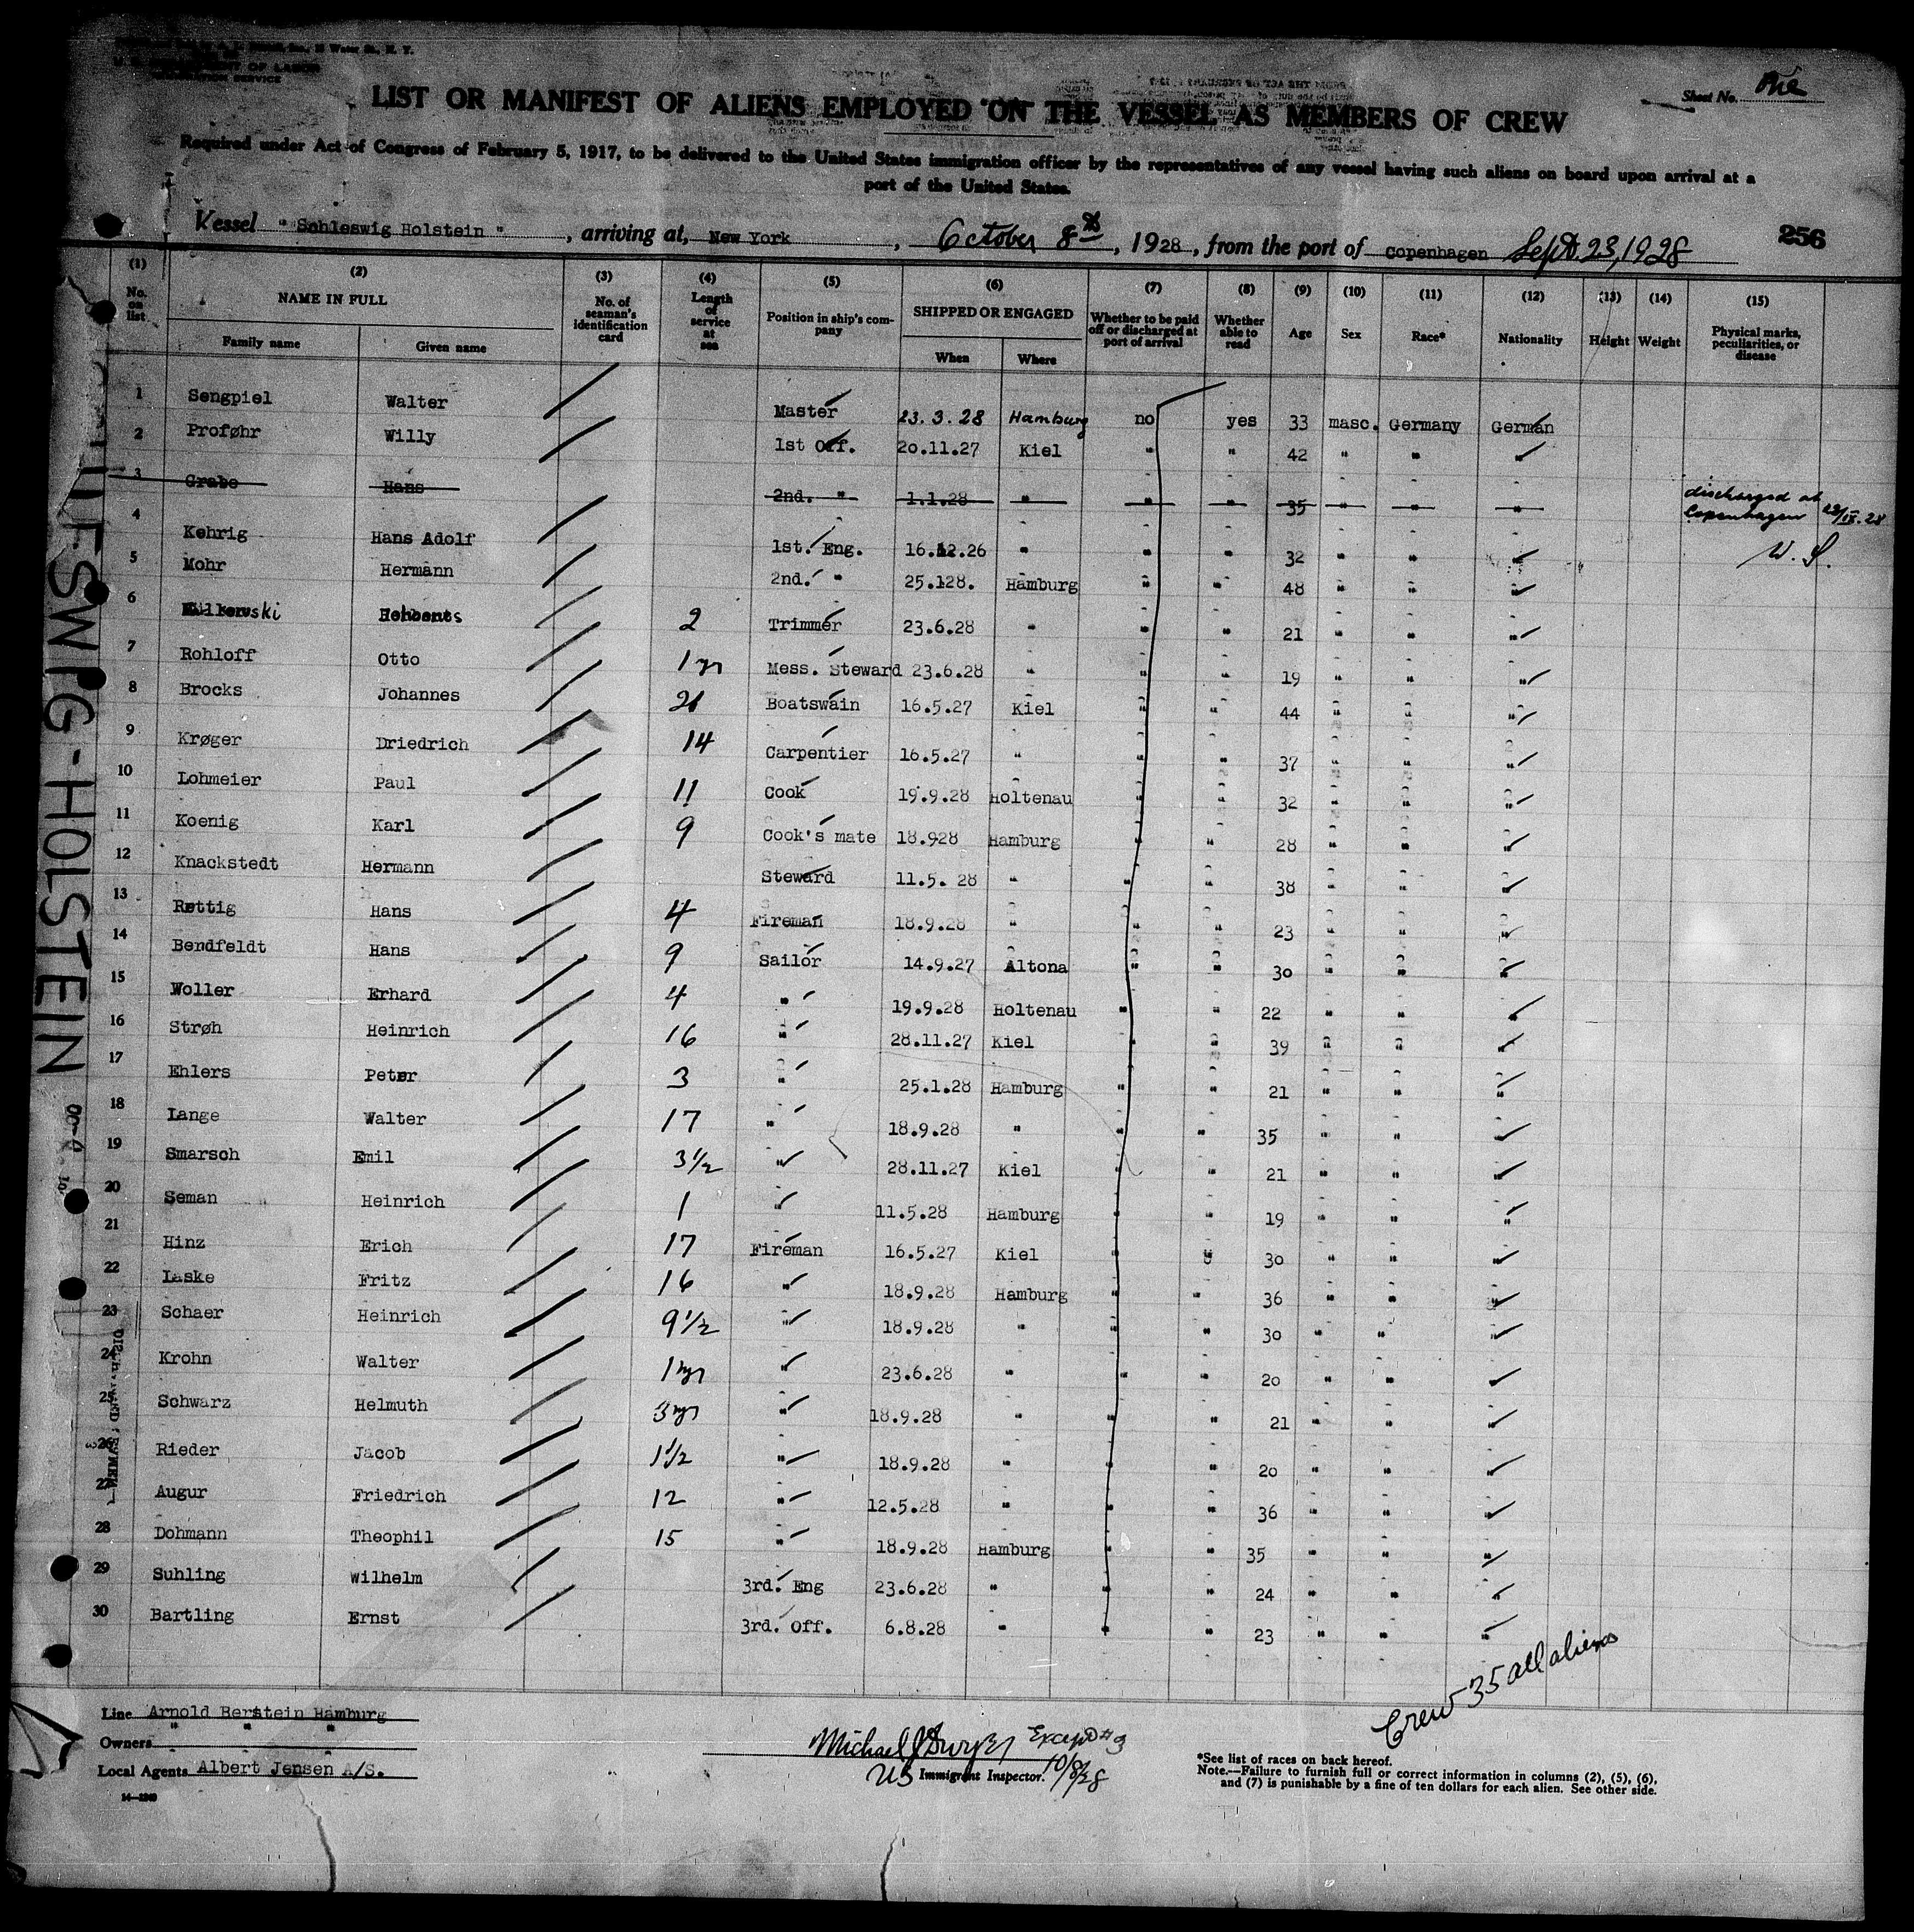 Sheet No. One
LIST OR MANIFEST OF ALIENS EMPLOYED ON THE VESSEL AS MEMBERS OF CREW
Required under Act of Congress of February 5, 1917, to be delivered to the United States immigration officer by the representatives of any vessel having such aliens on board upon arrival at a
port of the United States.
Vessel "Schleswig Holstein", arriving at, New York, October 8th, 1928, from the port of Copenhagen Sept. 23, 1928
256
(1) (2) (3) (4) (5) (6) (7) (8) (9) (10) (11) (12) (13) (14) (15)
No. on list NAME IN FULL Family name Given name No. of seaman's identification card Length of service at sea Position in ship's company SHIPPED OR ENGAGED When Where Whether to be paid off or discharged at port of arrival Whether able to read Age Sex Race* Nationality Height Weight Physical marks, peculiarities, or disease
1 Sengpiel Walter Master 23.3.28 Hamburg no yes 33 masc. Germany German
2 Proføhr Willy 1st Off. 20.11.27 Kiel " " 42 " " "
3 Grabe Hans 2nd. " 1.1.28 " " " 35 " " " discharged at Copenhagen 23/IX.28
W. S.
4 Kehrig Hans Adolf 1st. Eng. 16.12.26 " " " 32 " " "
5 Mohr Hermann 2nd. " 25.128. Hamburg " " 48 " " "
6 2 Trimmer 23.6.28 " " " 21 " " "
7 Rohloff Otto 1 yr Mess. Steward 23.6.28 " " " 19 " " "
8 Brocks Johannes 21 Boatswain 16.5.27 Kiel " " 44 " " "
9 Krøger Driedrich 14 Carpentier 16.5.27 " " " 37 " " "
10 Lohmeier Paul 11 Cook 19.9.28 Holtenau " " 32 " " "
11 Koenig Karl 9 Cook's mate 18.928 Hamburg " " 28 " " "
12 Knackstedt Hermann Steward 11.5. 28 " " " 38 " " "
13 Rettig Hans 4 Fireman 18.9.28 " " " 23 " " "
14 Bendfeldt Hans 9 Sailor 14.9.27 Altona " " 30 " " "
15 Woller Erhard 4 " 19.9.28 Holtenau " " 22 " " "
16 Strøh Heinrich 16 " 28.11.27 Kiel " " 39 " " "
17 Ehlers Peter 3 " 25.1.28 Hamburg " " 21 " " "
18 Lange Walter 17 " 18.9.28 " " " 35 " " "
19 Smarsch Emil 3 1/2 " 28.11.27 Kiel " " 21 " " "
20 Seman Heinrich 1 " 11.5.28 Hamburg " " 19 " " "
21 Hinz Erich 17 Fireman 16.5.27 Kiel " " 30 " " "
22 Laske Fritz 16 " 18.9.28 Hamburg " " 36 " " "
23 Schaer Heinrich 9 1/2 " 18.9.28 " " " 30 " " "
24 Krohn Walter 1 yr " 23.6.28 " " " 20 " " "
25 Schwarz Helmuth 3 yr " 18.9.28 " " " 21 " " "
26 Rieder Jacob 1 1/2 " 18.9.28 " " " 20 " " "
27 Augur Friedrich 12 " 12.5.28 " " " 36 " " "
28 Dohmann Theophil 15 " 18.9.28 Hamburg " " 35 " " "
29 Suhling Wilhelm 3rd. Eng 23.6.28 " " " 24 " " "
30 Bartling Ernst 3rd. Off. 6.8.28 " " " 23 " " "
Crew 35 all aliens
Line Arnold Berstein Hamburg
Owners " " "
Local Agents Albert Jensen A/S.
14—1240
Michael J Dwyer Except #3
US Immigrant Inspector. 10/8/28
*See list of races on back hereof.
Note.—Failure to furnish full or correct information in columns (2), (5), (6),
and (7) is punishable by a fine of ten dollars for each alien. See other side.
SWIG-HOLSTEIN